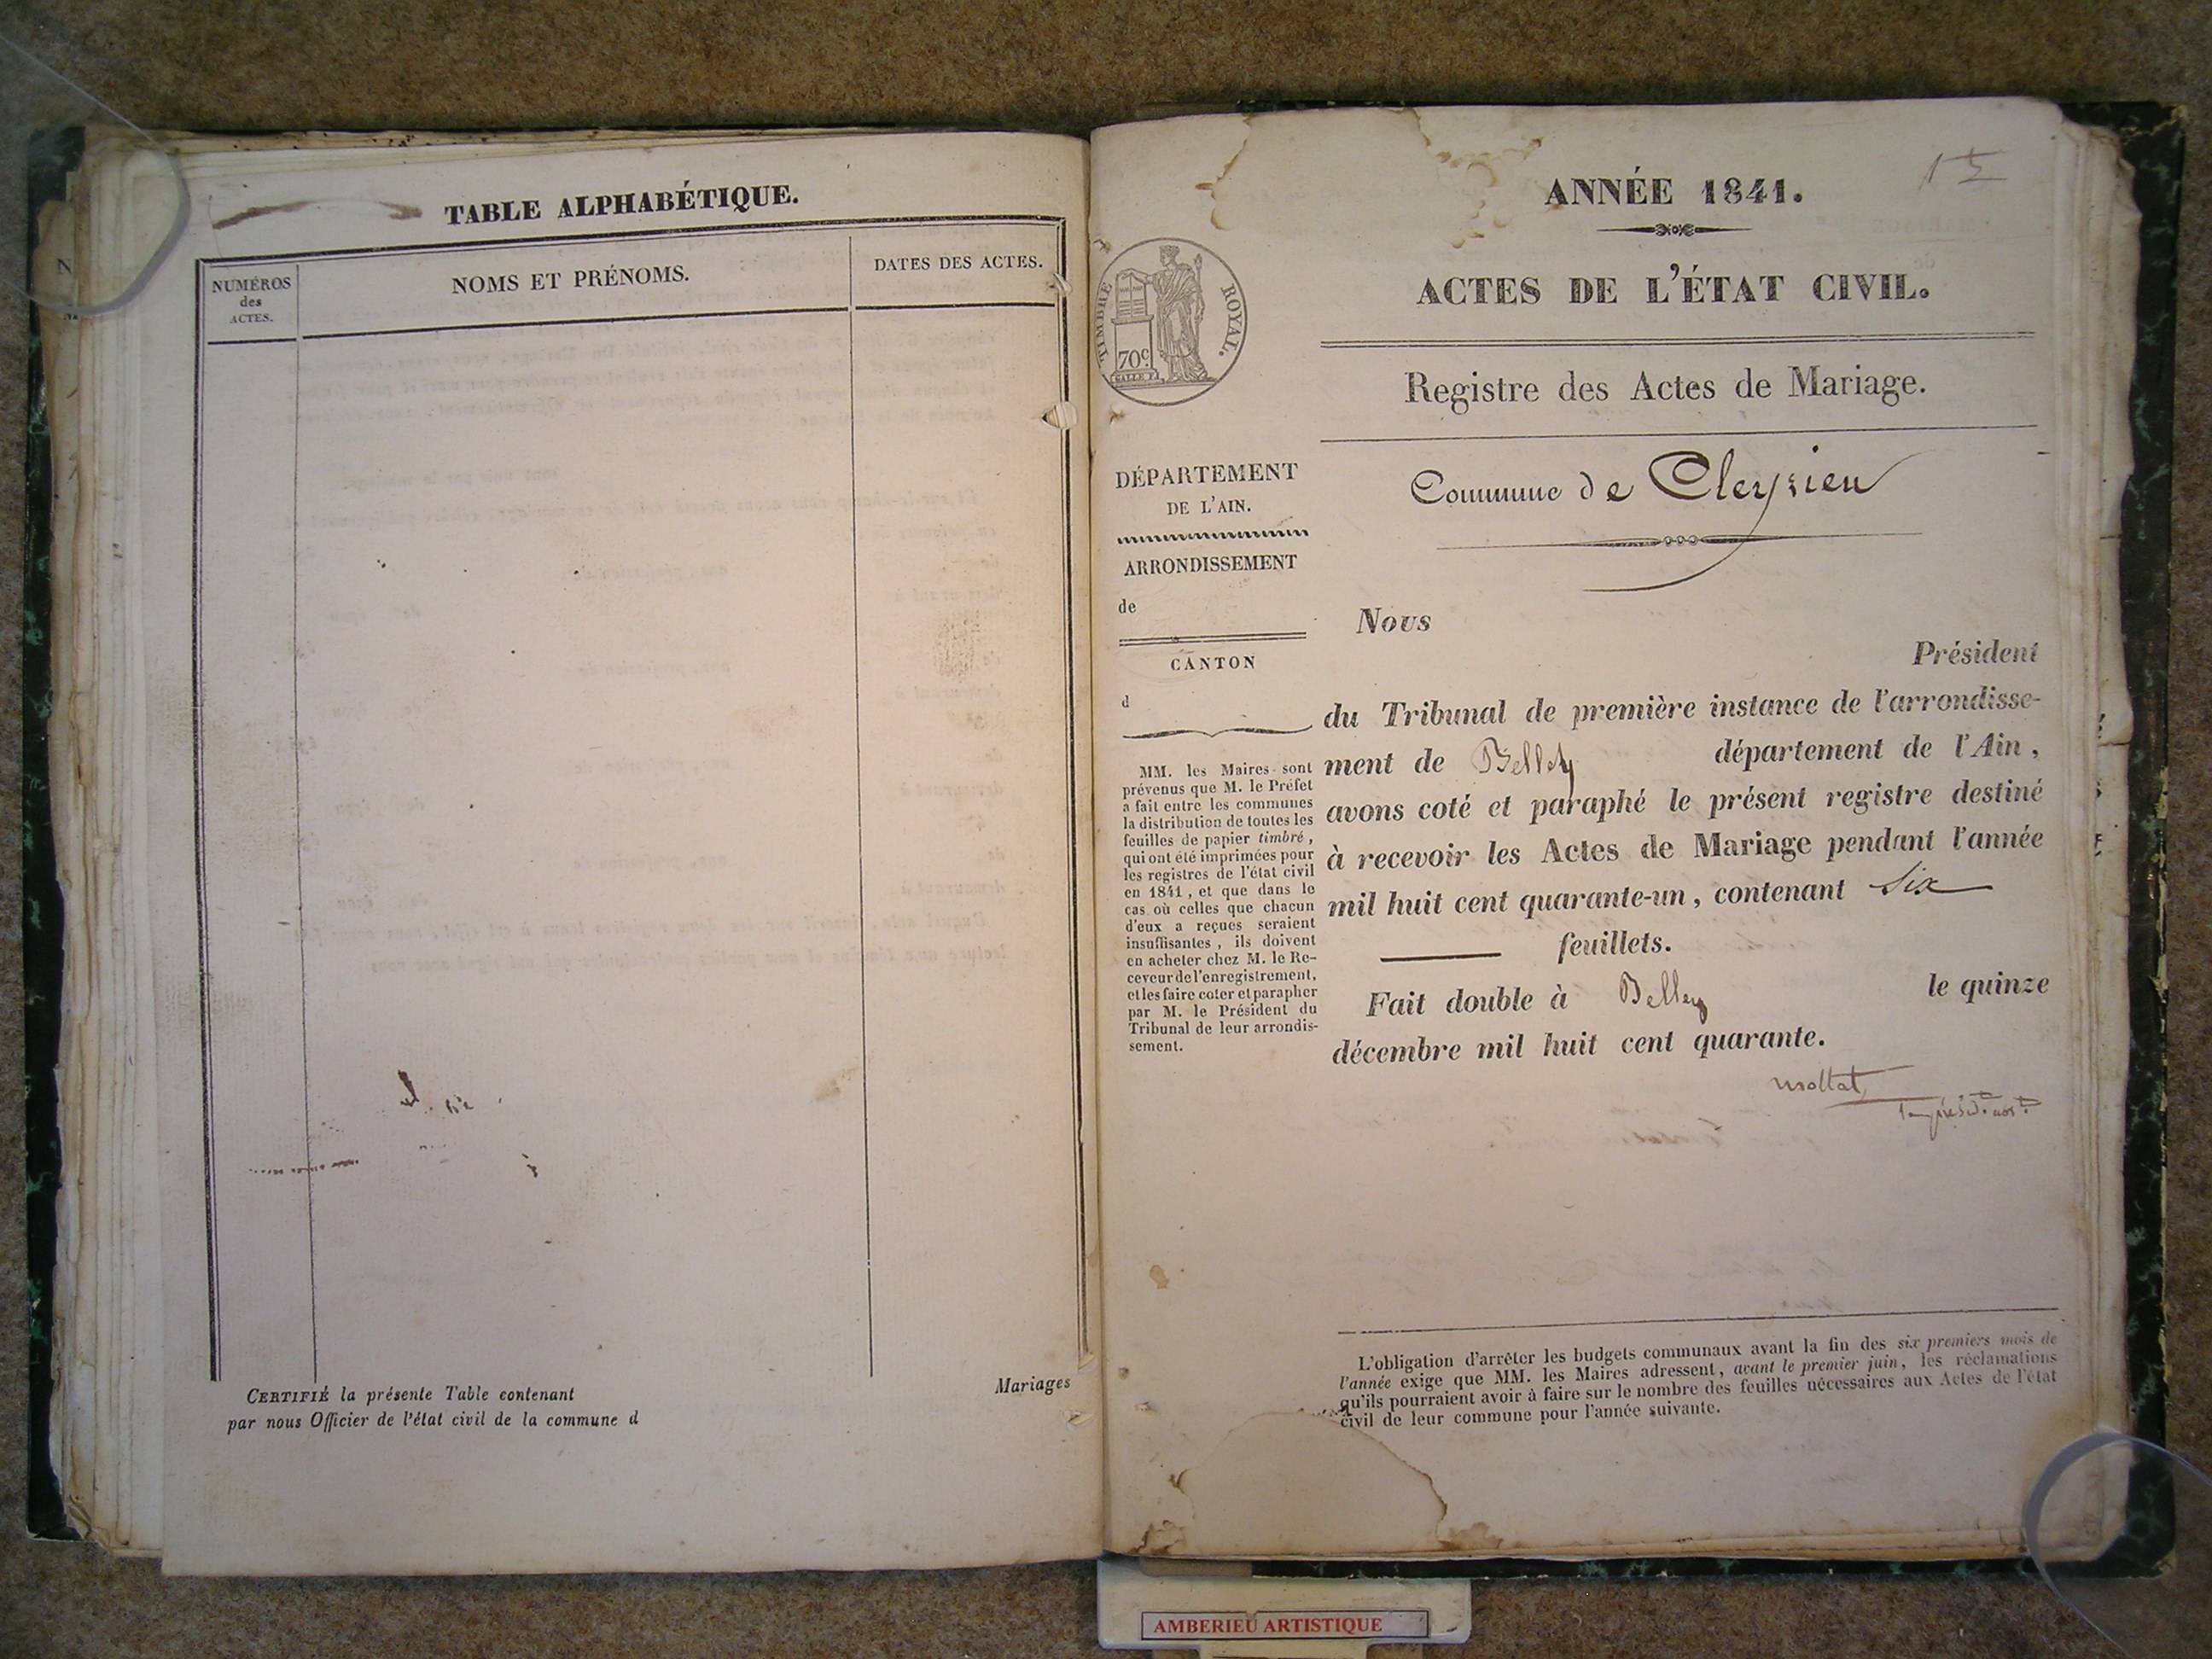 TABLE ALPHABÉTIQUE.
NUMÉROS
des
ACTES.
NOMS ET PRÉNOMS.
DATES DES ACTES.
CERTIFIÉ la présente Table contenant
Mariages
par nous Officier de l'état civil de la commune d
ANNÉE 1841.
ACTES DE L'ÉTAT CIVIL.
TIMBRE ROYAL.
70c
Registre des Actes de Mariage.
Commune de Cleyzieu
DÉPARTEMENT
DE L'AIN.
ARRONDISSEMENT
de
CANTON
d
MM. les Maires sont
prévenus que M. le Préfet
a fait entre les communes
la distribution de toutes les
feuilles de papier timbré,
qui ont été imprimées pour
les registres de l'état civil
en 1841, et que dans le
cas où celles que chacun
d'eux a reçues seraient
insuffisantes, ils doivent
en acheter chez M. le Re-
ceveur de l'enregistrement,
et les faire coter et parapher
par M. le Président du
Tribunal de leur arrondis-
sement.
Nous
Président
du Tribunal de première instance de l'arrondisse-
ment de Belley département de l'Ain,
avons coté et paraphé le présent registre destiné
à recevoir les Actes de Mariage pendant l'année
mil huit cent quarante-un, contenant Six
feuillets.
Fait double à Belley le quinze
décembre mil huit cent quarante.
L'obligation d'arrêter les budgets communaux avant la fin des six premiers mois de
l'année exige que MM. les Maires adressent, avant le premier juin, les réclamations
qu'ils pourraient avoir à faire sur le nombre des feuilles nécessaires aux Actes de l'état
civil de leur commune pour l'année suivante.
AMBERIEU ARTISTIQUE